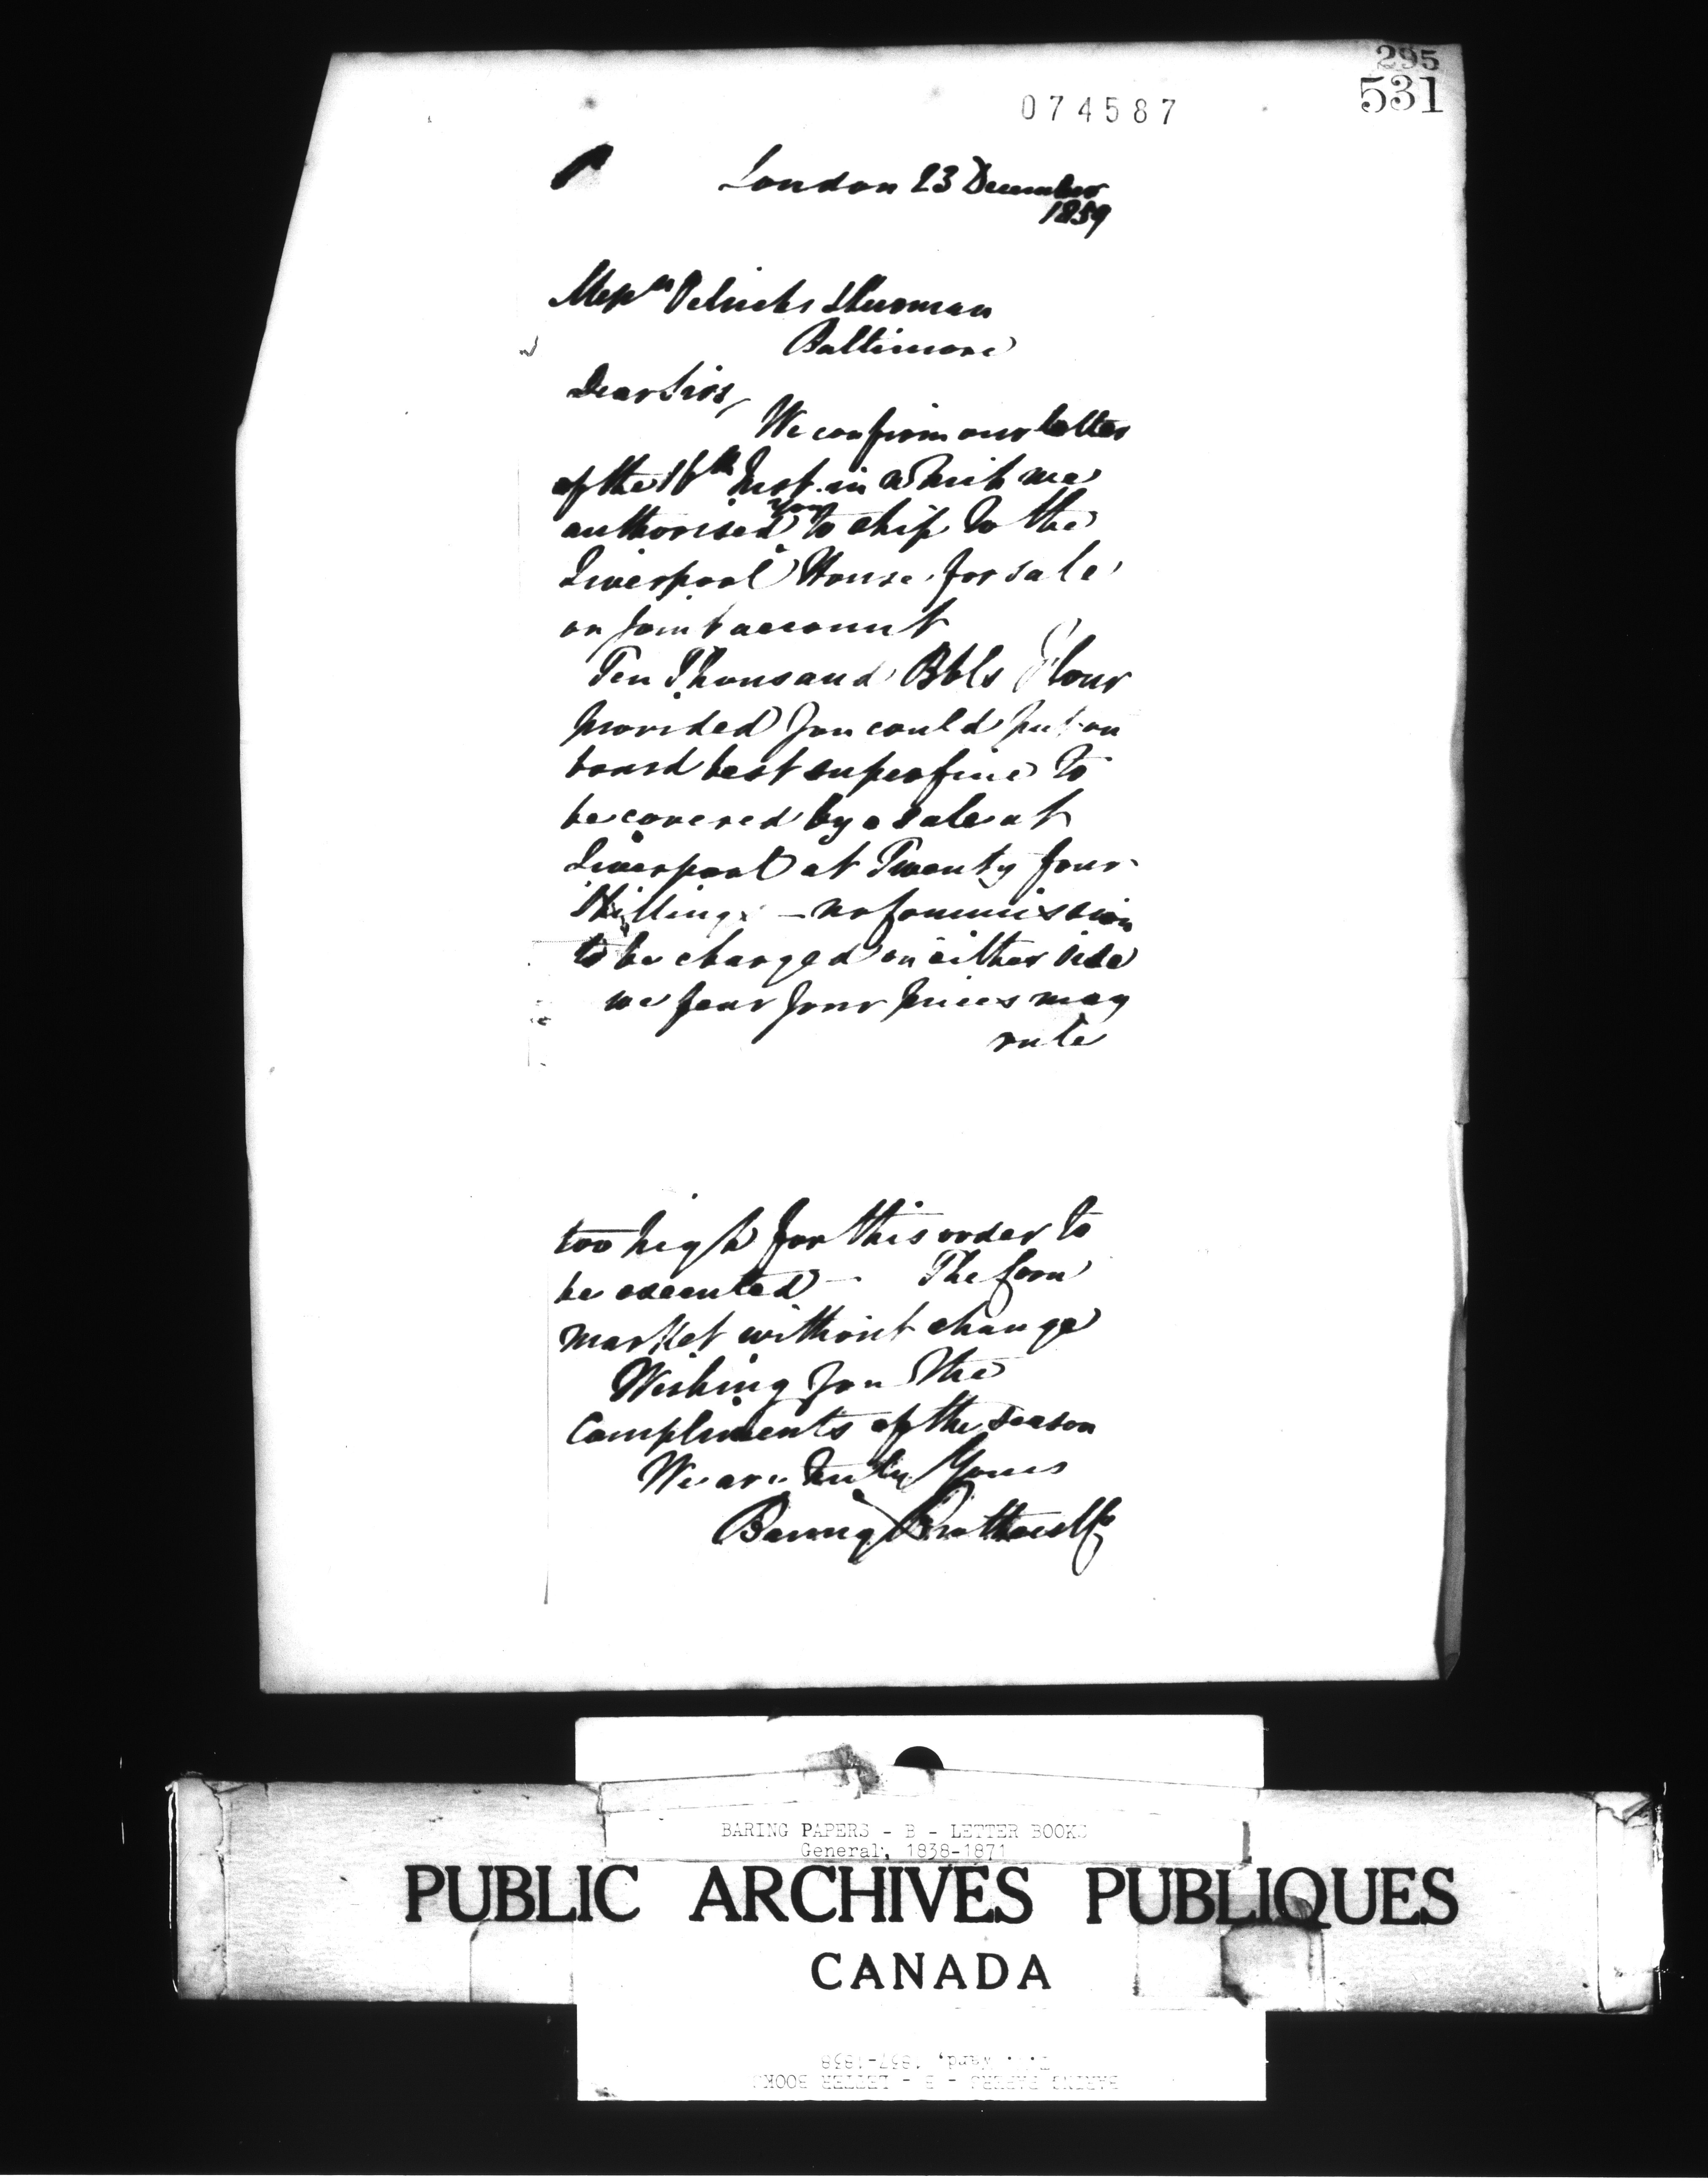 295
531
074587
London 23 December
1859
Mess rs Oelrichs & Lurman
Baltimore
Dear Sirs,
We confirm our letter
of the 16th Inst. in which we
authorised you to ship to the
Liverpool House for sale
on joint account
Ten Thousand Bbls Flour
provided you could put on
board best superfine to
be covered by a sale at
Liverpool at Twenty four
Shillings - no Commission
to be charged on either side
we fear your prices may
rule
too high for this order to
be executed - The Corn
market without change
Wishing you the
Compliments of the season
We are truly Yours
Baring Brothers & Co
BARING PAPERS - B - LETTER BOOKS
General, 1838-1871
PUBLIC ARCHIVES PUBLIQUES
CANADA
Ward, 1837-1838
BARING PAPERS - B - LETTER BOOKS